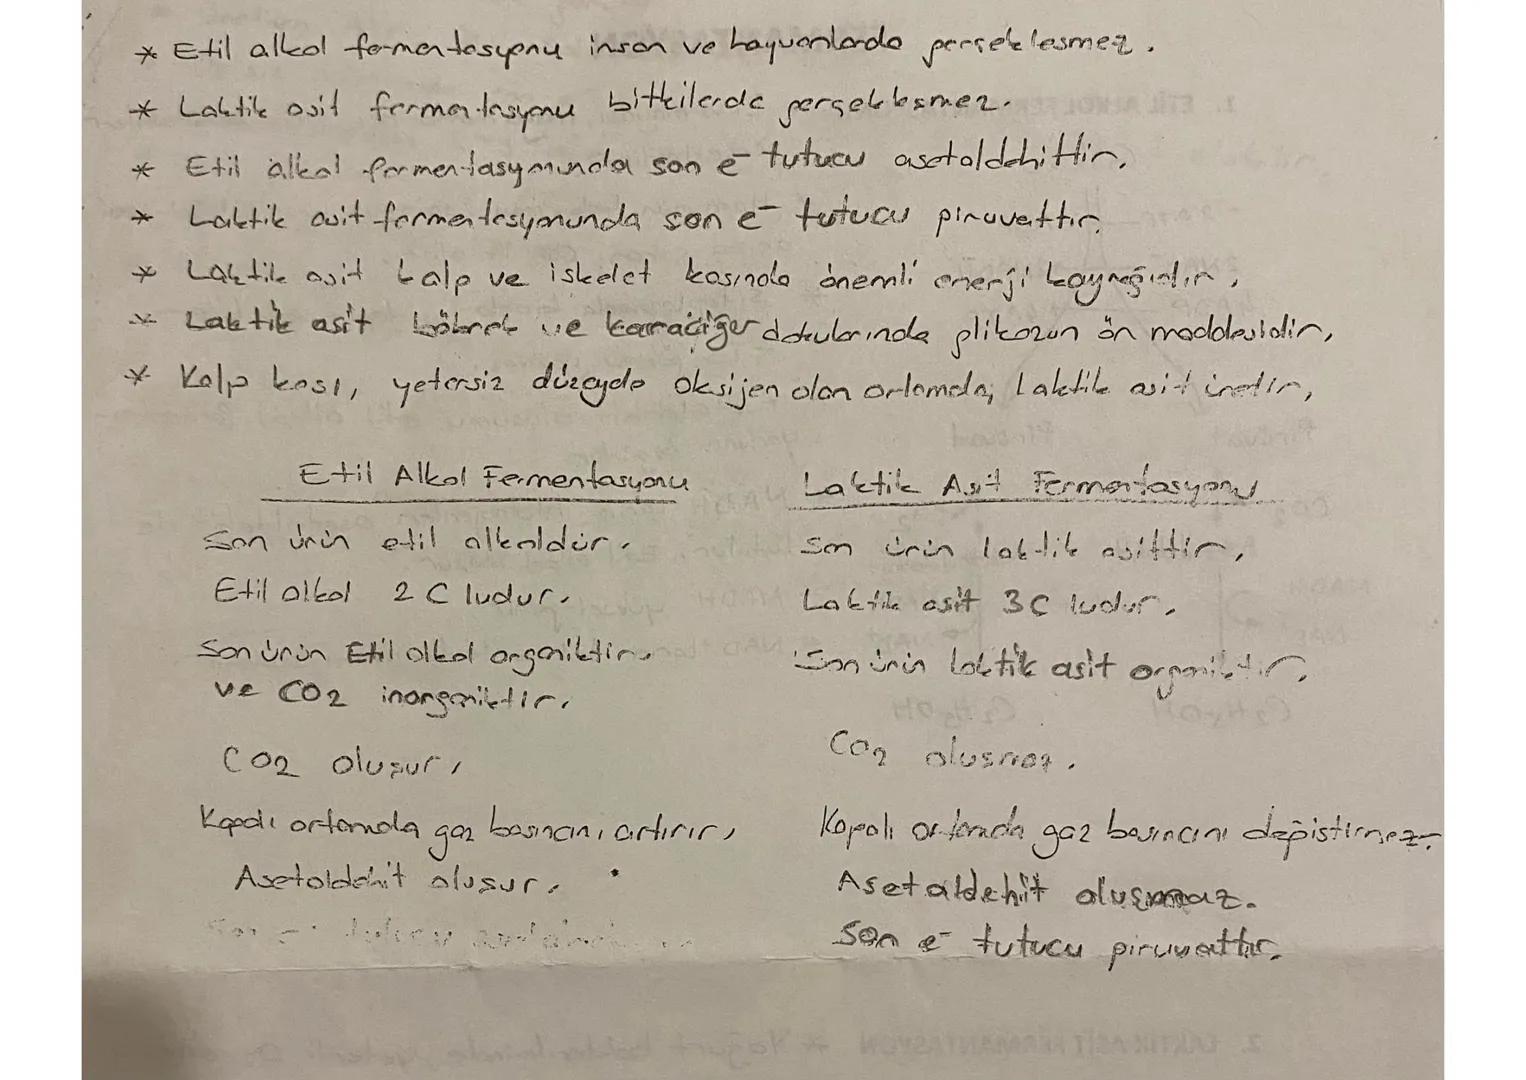 * Etil alkol fermentasyonu insan ve hayvanlarda gerçekleşmez.
* Laktik asit fermentasyonu bitkilerde gerçekleşmez.
* Etil alkol fermentasyonunda son e⁻ tutucu asetaldehittir.
* Laktik asit fermentasyonunda son e⁻ tutucu piruvattır.
* Laktik asit kalp ve iskelet kasında önemli enerji kaynağıdır.
* Laktik asit böbrek ve karaciğer dokularında glikozun ön maddesidir.
* Kalp kası, yetersiz düzeyde oksijen olan ortamda, laktik asit üretir.
Etil Alkol Fermentasyonu
Son ürün etil alkoldür.
Etil alkol 2 C ludur.
Son ürün Etil alkol organiktir.
ve CO2 inorganiktir.
CO2 oluşur.
Kapalı ortamda gaz basıncını artırır.
Asetaldehit oluşur.
Laktik Asit Fermentasyonu
Son ürün laktik asittir.
Laktik asit 3C ludur.
Son ürün laktik asit organiktir.
CO2 oluşmaz.
Kapalı ortamda gaz basıncını değiştirmez.
Asetaldehit oluşmaz.
Son e⁻ tutucu piruvattır.